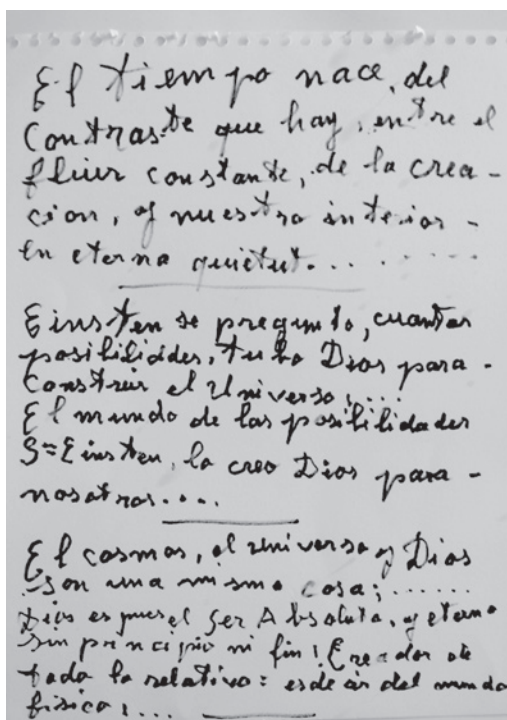 El tiempo nace, del
contraste que hay, entre el
fluir constante, de la crea-
cion, y nuestro interior -
en eterna quietut. . . . . . . .
Einsten se pregunto, cuantas
posibilidades, tubo Dios para -
Construir el Universo; . . . .
El mundo de las posibilidades
Einsten, lo creo Dios para -
nosotros. . . .
El cosmos, el universo y Dios
son una misma cosa; . . . . . .
Dios es pues el Ser Absoluto, y eterno
sin principio ni fin; Creador de
todo lo relativo: es decir del mundo
fisico; . . .